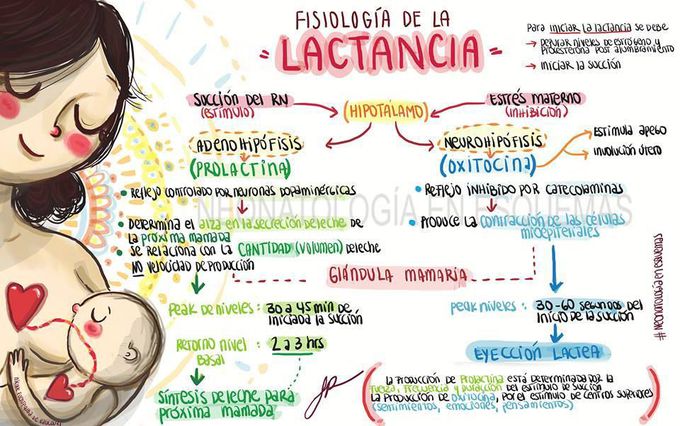 FISIOLOGÍA DE LA
"LACTANCIA"
Para iniciar la lactancia se debe
→ Depurar niveles de estrógeno y
Progesterona post alumbramiento
→ Iniciar la succión
Succión del RN
(Estímulo)
(HIPOTÁLAMO)
Estrés materno
(Inhibición)
ADENOHIPÓFISIS
(PROLACTINA)
NEUROHIPÓFISIS
(OXITOCINA)
Estimula apego
Involución útero
• Reflejo controlado por neuronas dopaminérgicas
• Reflejo inhibido por catecolaminas
NEONATOLOGÍA EN ESQUEMAS
• Determina el alza en la secreción de leche de
la próxima mamada
Se relaciona con la CANTIDAD (volumen) de leche
NO velocidad de producción
• Produce la contracción de las células
mioepiteliales
GLÁNDULA MAMARIA
Peak de niveles : 30 a 45 min de
iniciada la succión
Retorno nivel : 2 a 3 hrs
basal
Síntesis de leche para
próxima mamada
Peak niveles : 30-60 segundos del
inicio de la succión
EYECCIÓN LÁCTEA
La producción de Prolactina está determinada por la
fuerza, frecuencia y duración del estímulo de succión
La producción de oxitocina, por el estímulo de centros superiores
(sentimientos, emociones, pensamientos)
#neonatologia en esquemas